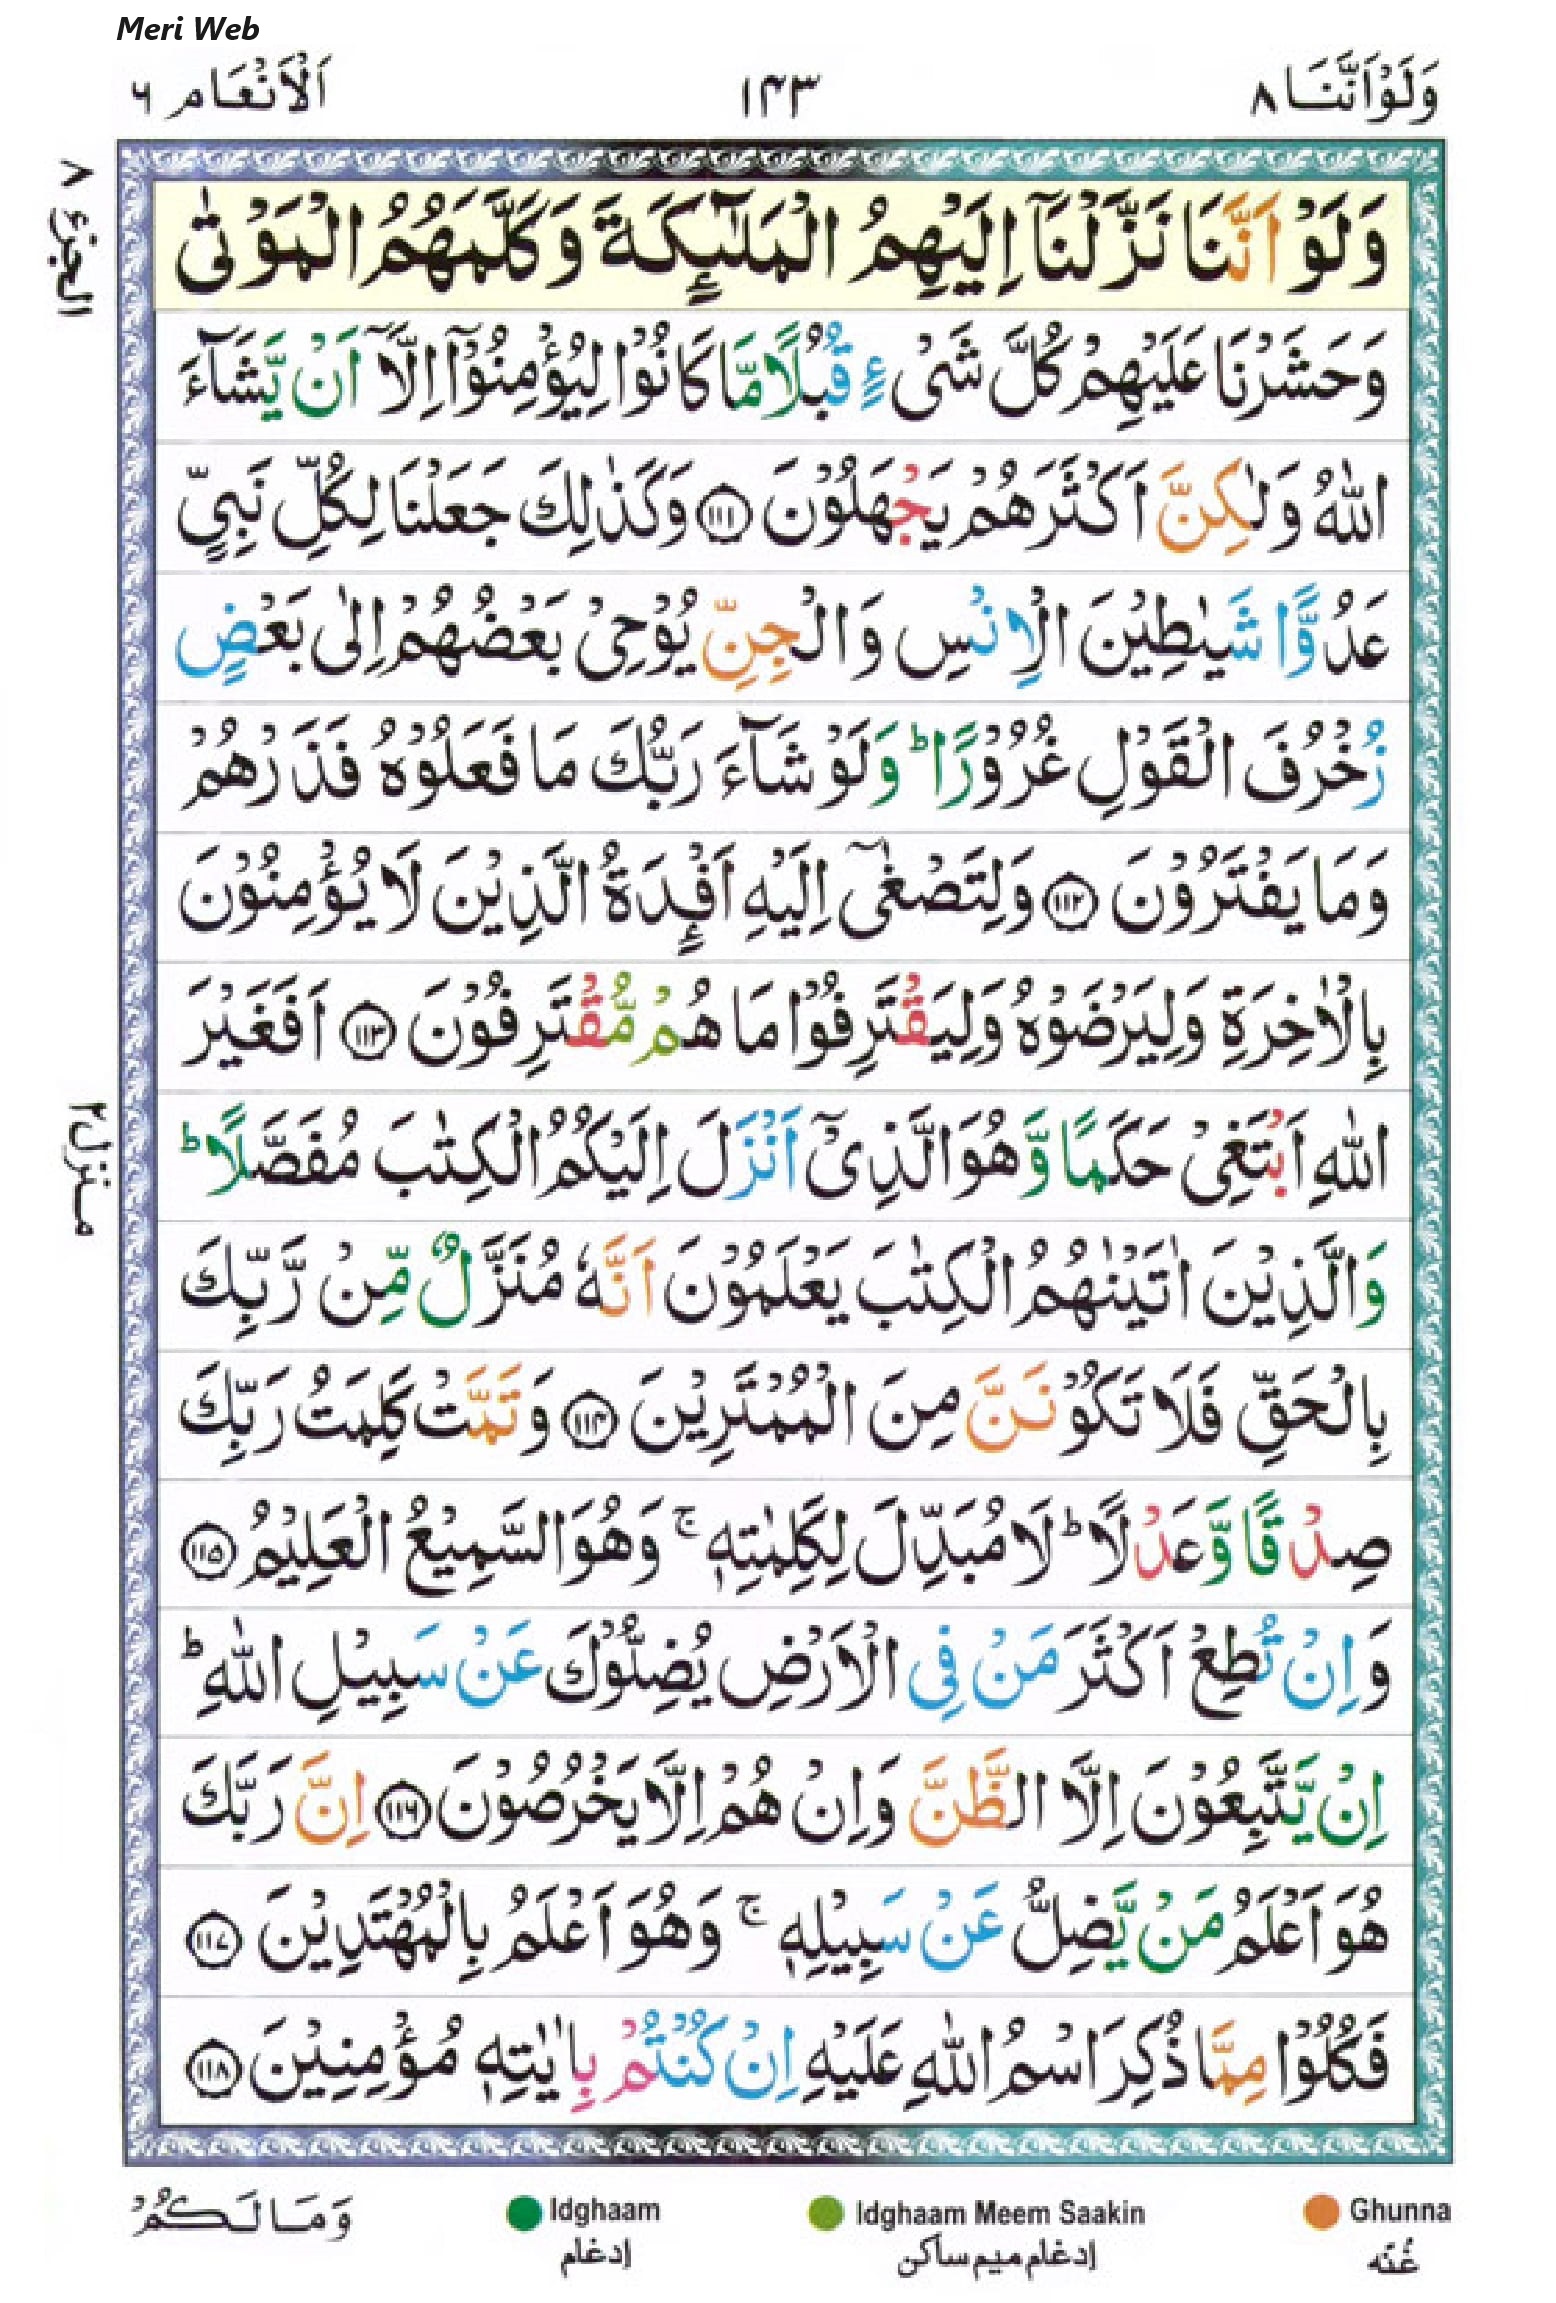 Meri Web
وَلَوْاَنَّنَا ٨
١٤٣
اَلْاَنْعَام ٦
الجزء ٨
وَلَوْ اَنَّنَا نَزَّلْنَاۤ اِلَيْهِمُ الْمَلٰٓئِكَةَ وَكَلَّمَهُمُ الْمَوْتٰى
وَحَشَرْنَا عَلَيْهِمْ كُلَّ شَىْءٍ قُبُلًا مَّا كَانُوْا لِيُؤْمِنُوْۤا اِلَّاۤ اَنْ يَّشَآءَ
اللّٰهُ وَلٰكِنَّ اَكْثَرَهُمْ يَجْهَلُوْنَ ١١١ وَكَذٰلِكَ جَعَلْنَا لِكُلِّ نَبِيٍّ
عَدُوًّا شَيٰطِيْنَ الْاِنْسِ وَالْجِنِّ يُوْحِىْ بَعْضُهُمْ اِلٰى بَعْضٍ
زُخْرُفَ الْقَوْلِ غُرُوْرًا ؕ وَلَوْ شَآءَ رَبُّكَ مَا فَعَلُوْهُ فَذَرْهُمْ
وَمَا يَفْتَرُوْنَ ١١٢ وَلِتَصْغٰۤى اِلَيْهِ اَفْئِدَةُ الَّذِيْنَ لَا يُؤْمِنُوْنَ
بِالْاٰخِرَةِ وَلِيَرْضَوْهُ وَلِيَقْتَرِفُوْا مَا هُمْ مُّقْتَرِفُوْنَ ١١٣ اَفَغَيْرَ
اللّٰهِ اَبْتَغِىْ حَكَمًا وَّهُوَ الَّذِىْۤ اَنْزَلَ اِلَيْكُمُ الْكِتٰبَ مُفَصَّلًا ؕ
وَالَّذِيْنَ اٰتَيْنٰهُمُ الْكِتٰبَ يَعْلَمُوْنَ اَنَّهٗ مُنَزَّلٌ مِّنْ رَّبِّكَ
بِالْحَقِّ فَلَا تَكُوْنَنَّ مِنَ الْمُمْتَرِيْنَ ١١٤ وَتَمَّتْ كَلِمَتُ رَبِّكَ
صِدْقًا وَّعَدْلًا ؕ لَا مُبَدِّلَ لِكَلِمٰتِهٖ ۚ وَهُوَ السَّمِيْعُ الْعَلِيْمُ ١١٥
وَاِنْ تُطِعْ اَكْثَرَ مَنْ فِى الْاَرْضِ يُضِلُّوْكَ عَنْ سَبِيْلِ اللّٰهِ ؕ
اِنْ يَّتَّبِعُوْنَ اِلَّا الظَّنَّ وَاِنْ هُمْ اِلَّا يَخْرُصُوْنَ ١١٦ اِنَّ رَبَّكَ
هُوَ اَعْلَمُ مَنْ يَّضِلُّ عَنْ سَبِيْلِهٖ ۚ وَهُوَ اَعْلَمُ بِالْمُهْتَدِيْنَ ١١٧
فَكُلُوْا مِمَّا ذُكِرَ اسْمُ اللّٰهِ عَلَيْهِ اِنْ كُنْتُمْ بِاٰيٰتِهٖ مُؤْمِنِيْنَ ١١٨
منزل ٢
وَمَا لَكُمْ
Idghaam
إدغام
Idghaam Meem Saakin
إدغام ميم ساكن
Ghunna
غُنّه